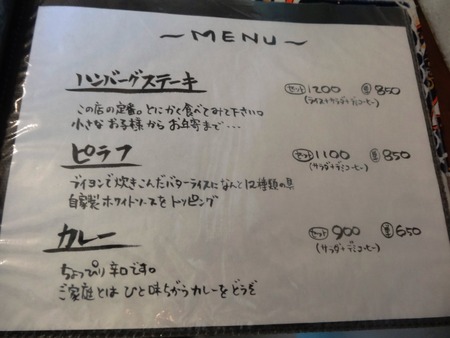 ～MENU～
ハンバーグステーキ
セット 1200 単 850
(ライス+サラダ+デミコーヒー)
この店の定番。とにかく食べてみて下さい。
小さなお子様からお年寄まで・・・
ピラフ
セット 1100 単 850
(サラダ+デミコーヒー)
ブイヨンで炊きこんだバターライスになんと12種類の具
自家製ホワイトソースをトッピング
カレー
セット 900 単 650
(サラダ+デミコーヒー)
ちょっぴり辛口です。
ご家庭とはひと味ちがうカレーをどうぞ